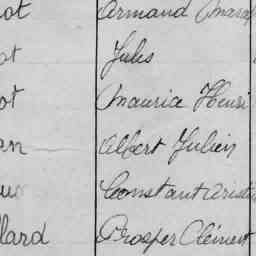 ot Armand
ot Jules
ot Maurice Henri
an Albert Julien
Constant
llard Prosper Clément